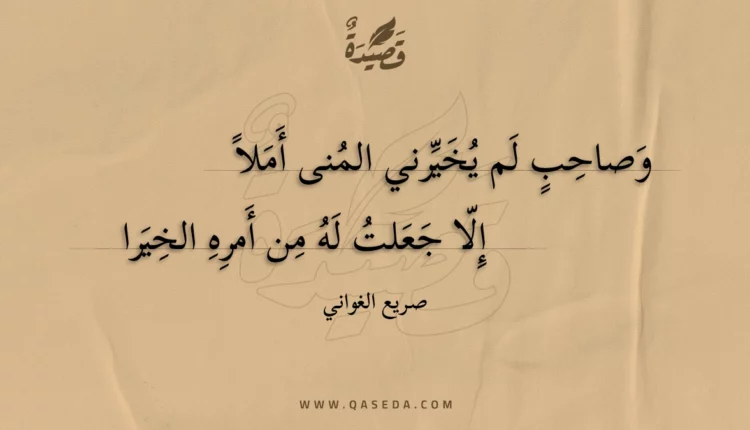 قَصِيدَةٌ
وَصاحِبٍ لَم يُخَيِّرني المُنى أَمَلاً
إِلّا جَعَلتُ لَهُ مِن أَمرِهِ الخِيَرا
صريع الغواني
WWW.QASEDA.COM